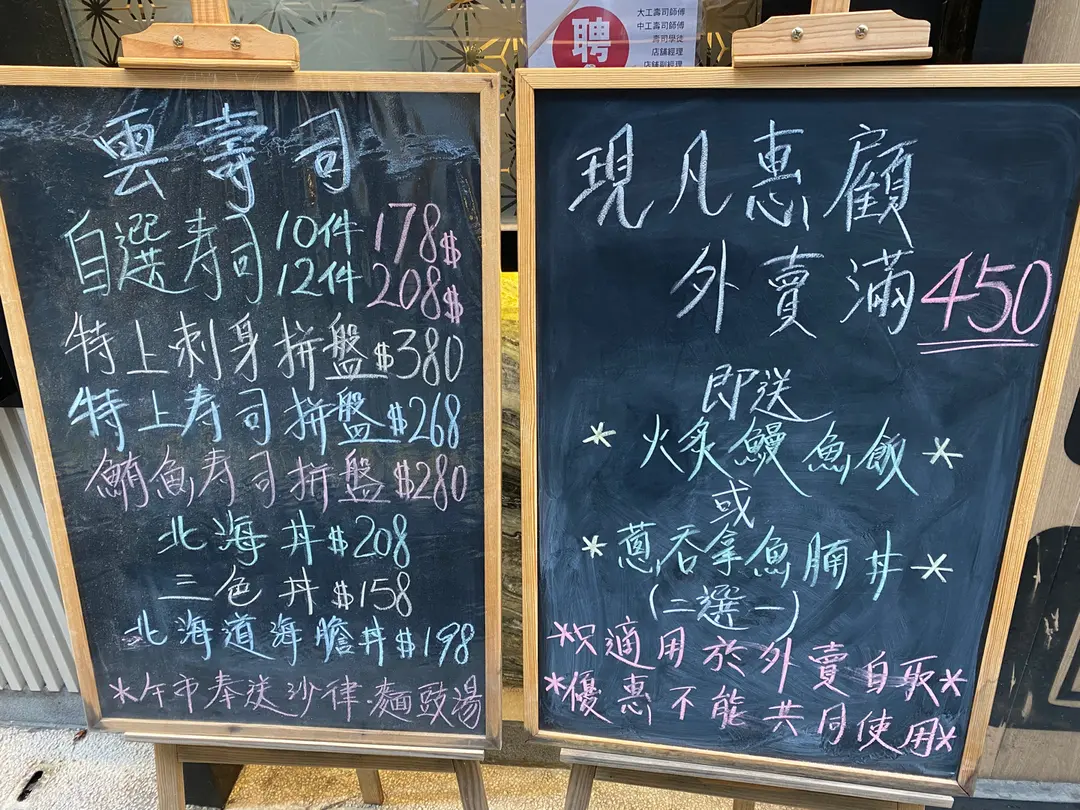 聘
大工壽司師傅
中工壽司師傅
壽司學徒
店舖經理
店舖副經理
雲壽司
自選寿司 10件 178$
12件 208$
特上刺身拼盤$380
特上寿司拼盤$268
鮪魚寿司拼盤$280
北海丼$208
三色丼$158
北海道海膽丼$198
*午市奉送沙律.麵豉湯
現凡惠顧
外賣滿450
即送
*火炙鰻魚飯*
或
*蔥吞拿魚腩丼*
(二選一)
*只適用於外賣自取*
*優惠不能共同使用*